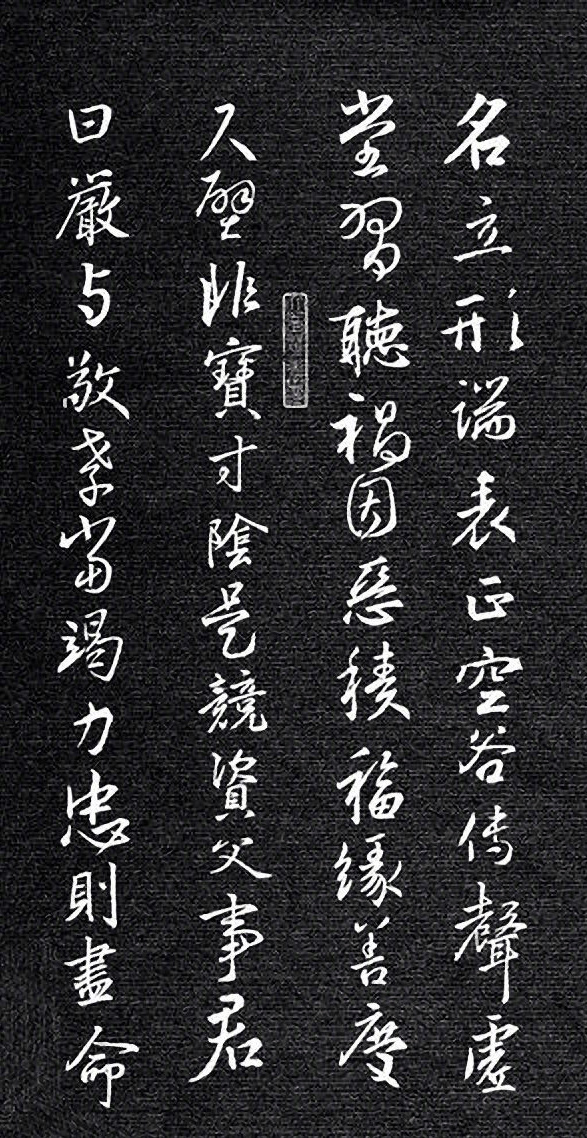 名立形端表正空谷傳聲虛
堂習聽禍因惡積福緣善慶
尺璧非寶寸陰是競資父事君
曰嚴与敬孝當竭力忠則盡命